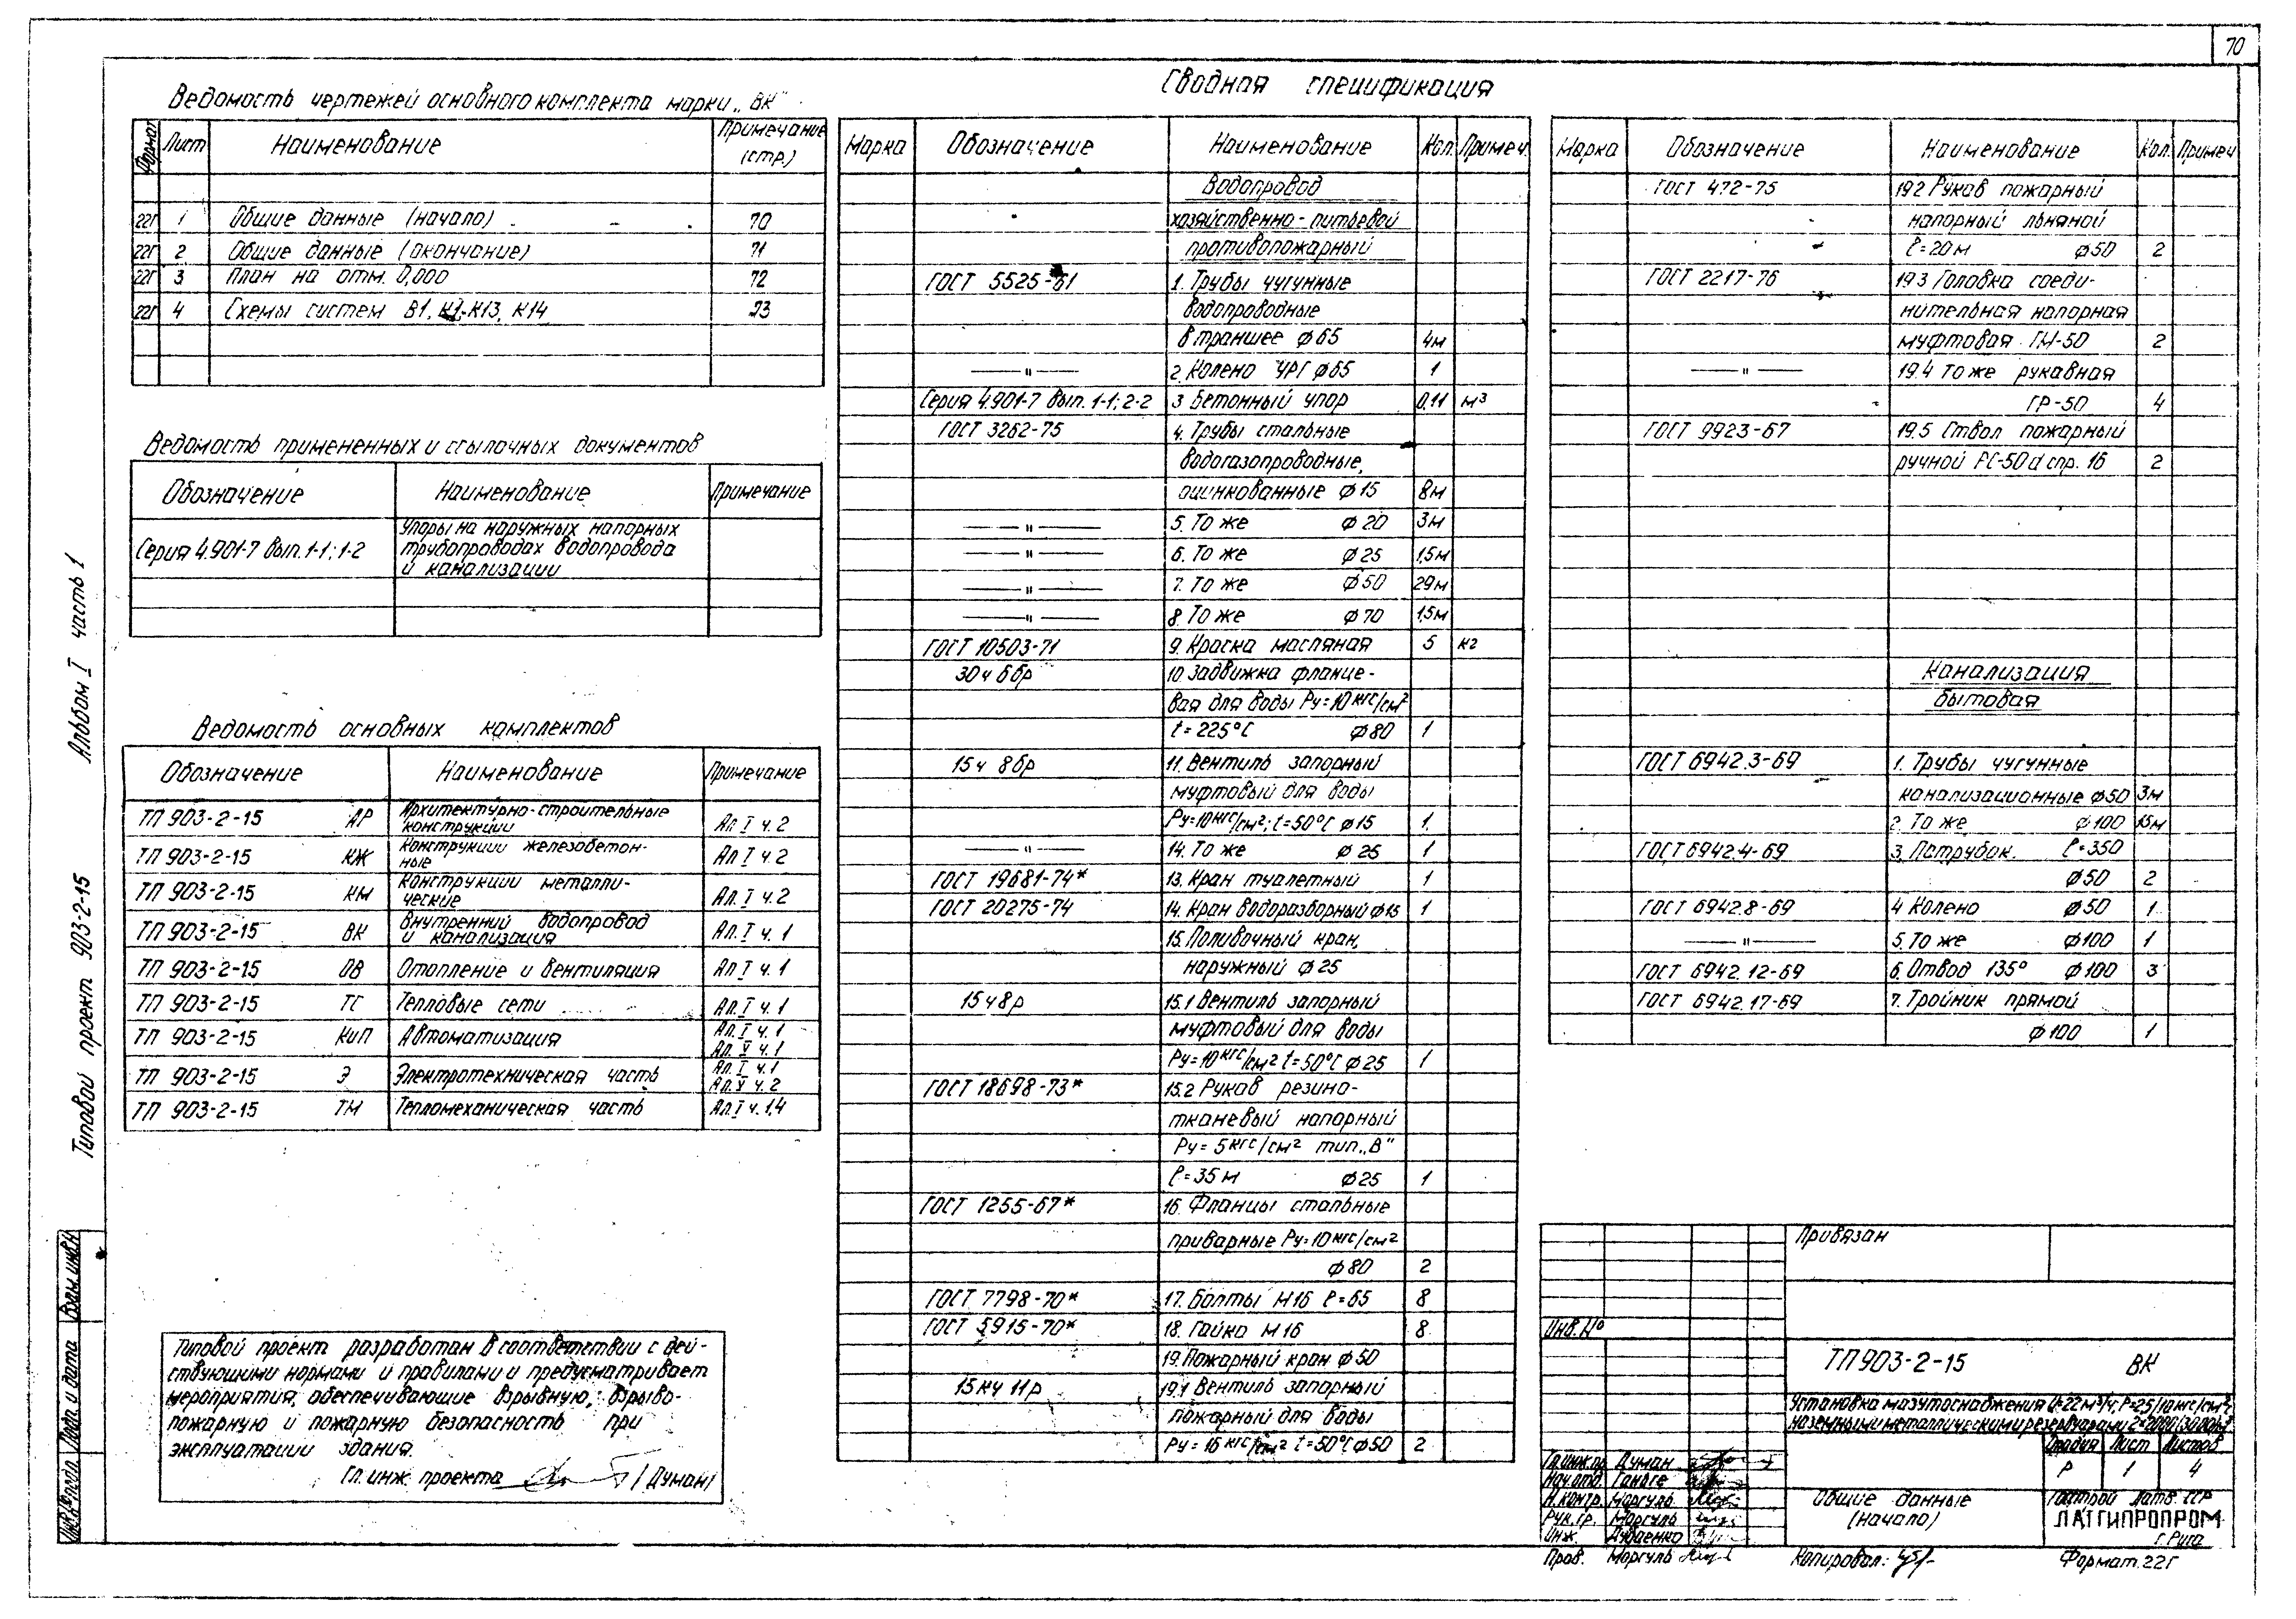 70
Ведомость чертежей основного комплекта марки „ВК"
Формат Лист Наименование Примечание (стр.)
22Г 1 Общие данные (начало) 70
22Г 2 Общие данные (окончание) 71
22Г 3 План на отм. 0,000 72
22Г 4 Схемы систем В1, К1, К13, К14 73
Ведомость примененных и ссылочных документов
Обозначение Наименование Примечание
Серия 4.901-7 вып. 1-1; 1-2 Упоры на наружных напорных
трубопроводах водопровода
и канализации
Ведомость основных комплектов
Обозначение Наименование Примечание
ТП 903-2-15 АР Архитектурно-строительные конструкции Ал I ч.2
ТП 903-2-15 КЖ Конструкции железобетон-
ные Ал I ч.2
ТП 903-2-15 КМ Конструкции металли-
ческие Ал. I ч.2
ТП 903-2-15 ВК Внутренний водопровод
и канализация Ал. I ч.1
ТП 903-2-15 ОВ Отопление и вентиляция Ал I ч.1
ТП 903-2-15 ТС Тепловые сети Ал. I ч.1
ТП 903-2-15 КиП Автоматизация Ал. I ч.1
Ал. V ч.1
ТП 903-2-15 Э Электротехническая часть Ал. I ч.1
Ал. V ч.2
ТП 903-2-15 ТМ Тепломеханическая часть Ал. I ч.1,4
Типовой проект разработан в соответствии с дей-
ствующими нормами и правилами и предусматривает
мероприятия, обеспечивающие взрывную, взрыво-
пожарную и пожарную безопасность при
эксплуатации здания.
Гл. инж. проекта /Думан/
Сводная спецификация
Марка Обозначение Наименование Кол. Примеч.
Водопровод
хозяйственно-питьевой
противопожарный
ГОСТ 5525-61 1. Трубы чугунные
водопроводные
в траншее ф65 4м
—"— 2. Колено УРГ ф65 1
Серия 4.901-7 Вып. 1-1; 2-2 3 Бетонный упор 0,11 м³
ГОСТ 3262-75 4. Трубы стальные
водогазопроводные,
оцинкованные ф15 8м
—"— 5. То же ф20 3м
—"— 6. То же ф25 1,5м
—"— 7. То же ф50 29м
—"— 8. То же ф70 1,5м
ГОСТ 10503-71 9. Краска масляная 5 кг
30ч6бр 10. Задвижка фланце-
вая для воды Ру=10 кгс/см²
t=225°С ф80 1
15ч 8бр 11. Вентиль запорный
муфтовый для воды
Ру=10кгс/см²; t=50°С ф15 1
—"— 14. То же ф25 1
ГОСТ 19681-74* 13. Кран туалетный 1
ГОСТ 20275-74 14. Кран водоразборный ф15 1
15. Поливочный кран,
наружный ф25
15ч8р 15.1 Вентиль запорный
муфтовый для воды
Ру=10кгс/см² t=50°С ф25 1
ГОСТ 18698-73* 15.2 Рукав резино-
тканевый напорный
Ру=5кгс/см² тип „В"
ℓ=35м ф25 1
ГОСТ 1255-67* 16. Фланцы стальные
приварные Ру=10кгс/см²
ф80 2
ГОСТ 7798-70* 17. Болты М16 ℓ=65 8
ГОСТ 5915-70* 18. Гайка М16 8
19. Пожарный кран ф50
15кч 11р 19.1 Вентиль запорный
пожарный для воды
Ру=16кгс/см² t=50°С ф50 2
Марка Обозначение Наименование Кол. Примеч
ГОСТ 472-75 19.2 Рукав пожарный
напорный льняной
ℓ=20м ф50 2
ГОСТ 2217-76 19.3 Головка соеди-
нительная напорная
муфтовая ГМ-50 2
—"— 19.4 То же рукавная
ГР-50 4
ГОСТ 9923-67 19.5 Ствол пожарный
ручной РС-50 d спр. 16 2
Канализация
бытовая
ГОСТ 6942.3-69 1. Трубы чугунные
канализационные ф50 3м
2. То же ф100 15м
ГОСТ 6942.4-69 3. Патрубок ℓ=350
ф50 2
ГОСТ 6942.8-69 4 Колено ф50 1
—"— 5. То же ф100 1
ГОСТ 6942.12-69 6. Отвод 135° ф100 3
ГОСТ 6942.17-69 7. Тройник прямой
ф100 1
Привязан
Инв. №
ТП 903-2-15 ВК
Установка мазутоснабжения Q=22м³/ч, Р=25/10кгс/см² с
наземными металлическими резервуарами
Стадия Лист Листов
Р 1 4
Гл.инж.пр Думан
Нач.отд. Ганьге
Н.контр. Моргуль
Рук.гр. Моргуль
Инж. Дубаенко
Пров. Моргуль
Общие данные
(начало)
Госстрой Латв. ССР
ЛАТГИПРОПРОМ
г. Рига
Копировал:
Формат 22Г
Типовой проект 903-2-15 Альбом I часть 1
Инв.№подл. Подп. и дата Взам.инв.№